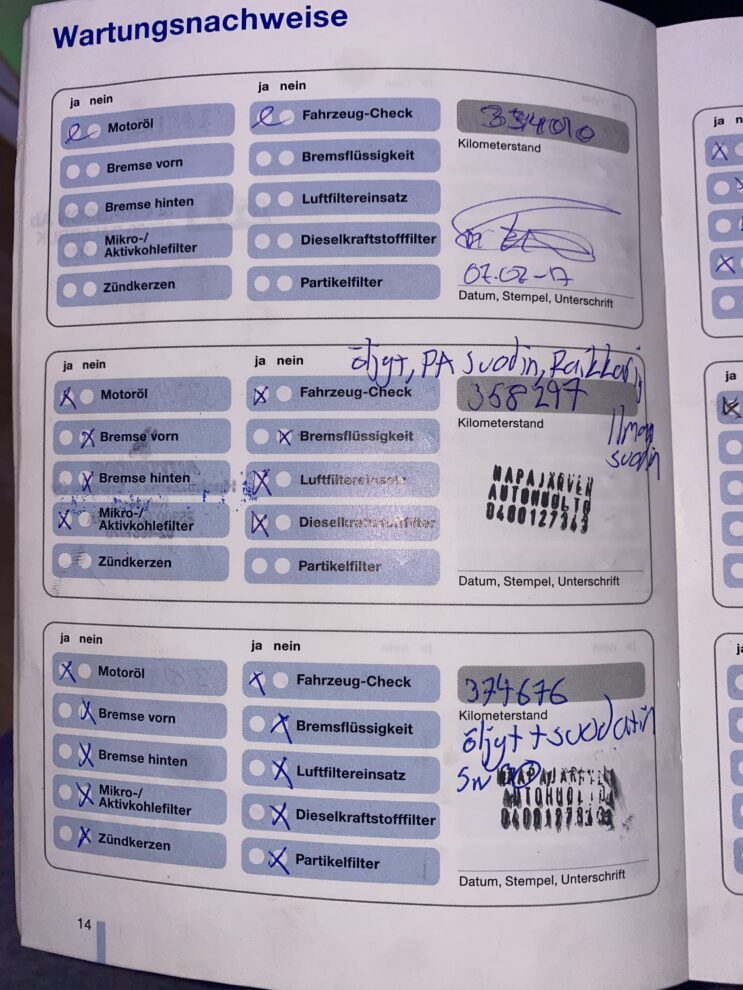 Wartungsnachweise
ja nein
ja nein
Motoröl
Fahrzeug-Check
Bremse vorn
Bremsflüssigkeit
Kilometerstand
Bremse hinten
Luftfiltereinsatz
Mikro-/
Aktivkohlefilter
Dieselkraftstofffilter
07.02-17
Zündkerzen
Partikelfilter
Datum, Stempel, Unterschrift
ja nein
ja nein
öljyt, PA suodin,
Motoröl
Fahrzeug-Check
358297
Kilometerstand
Ilman
suodin
Bremse vorn
Bremsflüssigkeit
Bremse hinten
Luftfiltereinsatz
NAPAJÄRVEN
AUTOHUOLTO
0400127343
Mikro-/
Aktivkohlefilter
Dieselkraftstofffilter
Zündkerzen
Partikelfilter
Datum, Stempel, Unterschrift
ja nein
ja nein
Motoröl
Fahrzeug-Check
374676
Kilometerstand
Bremse vorn
Bremsflüssigkeit
öljyt + suodatin
Bremse hinten
Luftfiltereinsatz
5W
AUTOHUOLTO
Mikro-/
Aktivkohlefilter
Dieselkraftstofffilter
Zündkerzen
Partikelfilter
Datum, Stempel, Unterschrift
14
ja
ja